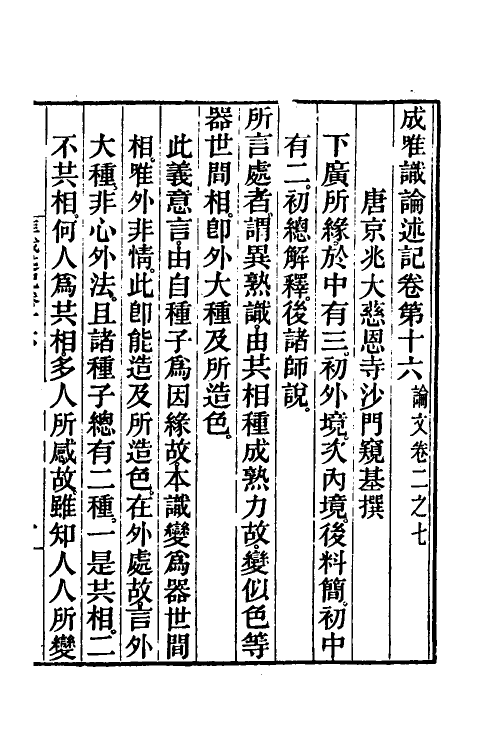 成唯識論述記卷第十六 論文卷二之七
唐京兆大慈恩寺沙門窺基撰
下廣所緣於中有三。初外境。次內境。後料簡。初中
有二。初總解釋。後諸師說。
所言處者。謂異熟識。由共相種成熟力故。變似色等
器世間相。卽外大種及所造色。
此義意言。由自種子爲因緣故。本識變爲器世間
相。唯外非情。此卽能造及所造色。在外處故。言外
大種。非心外法。且諸種子總有二種。一是共相。二
不共相。何人爲共相。多人所感故。雖知人人所變